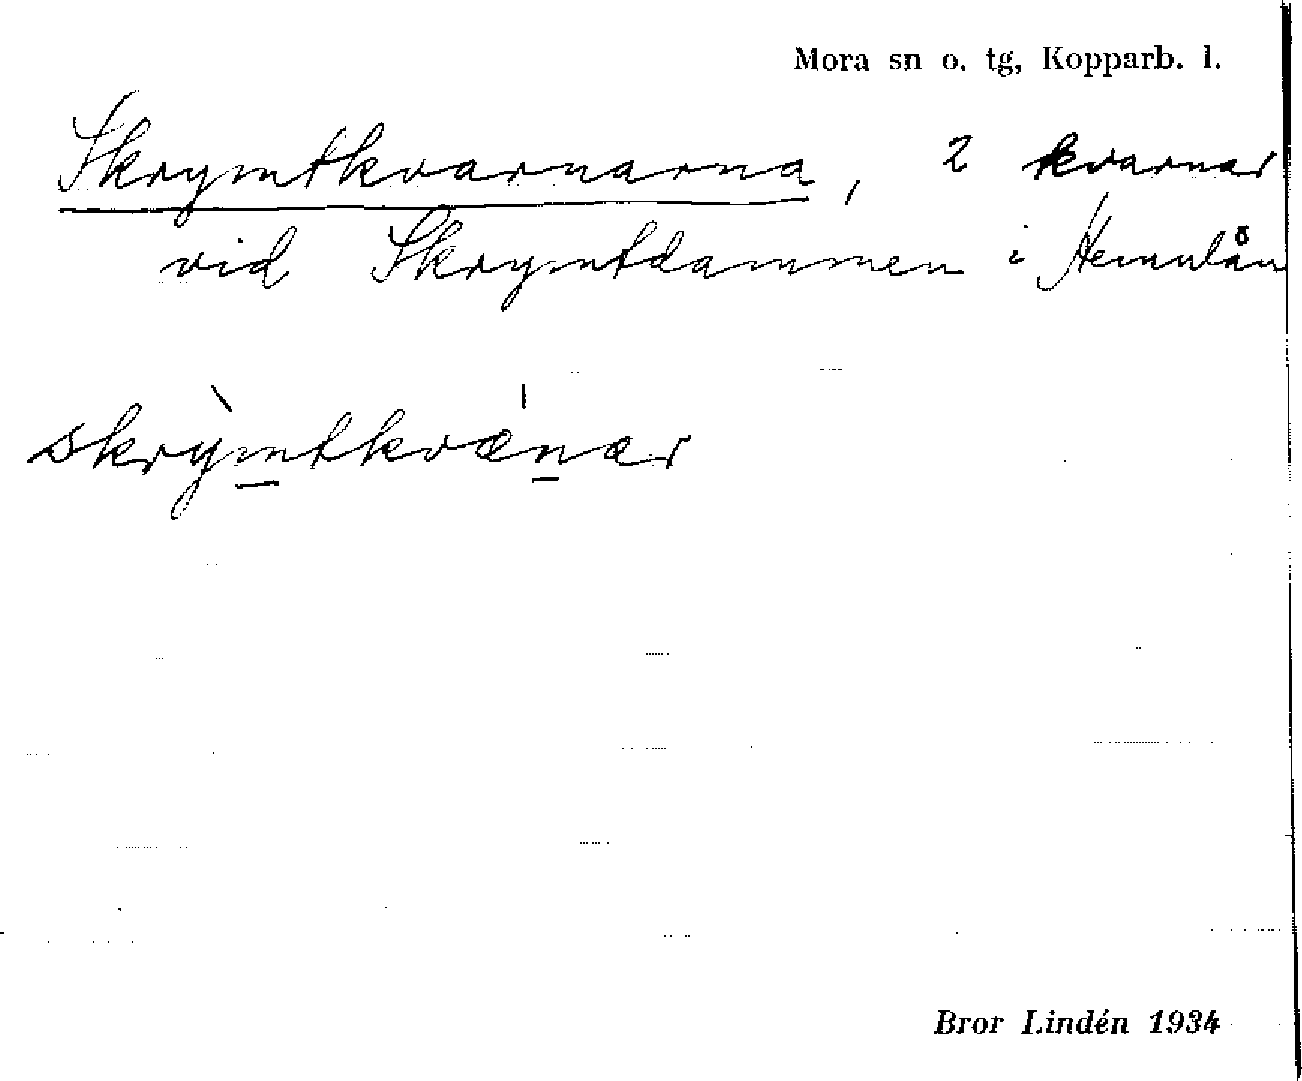 Mora sn o. tg, Kopparb. l.
Skrymtkvarnarna, 2 kvarnar
vid Skrymtdammen i Hemulån
skrỳmtkvænær
Bror Lindén 1934